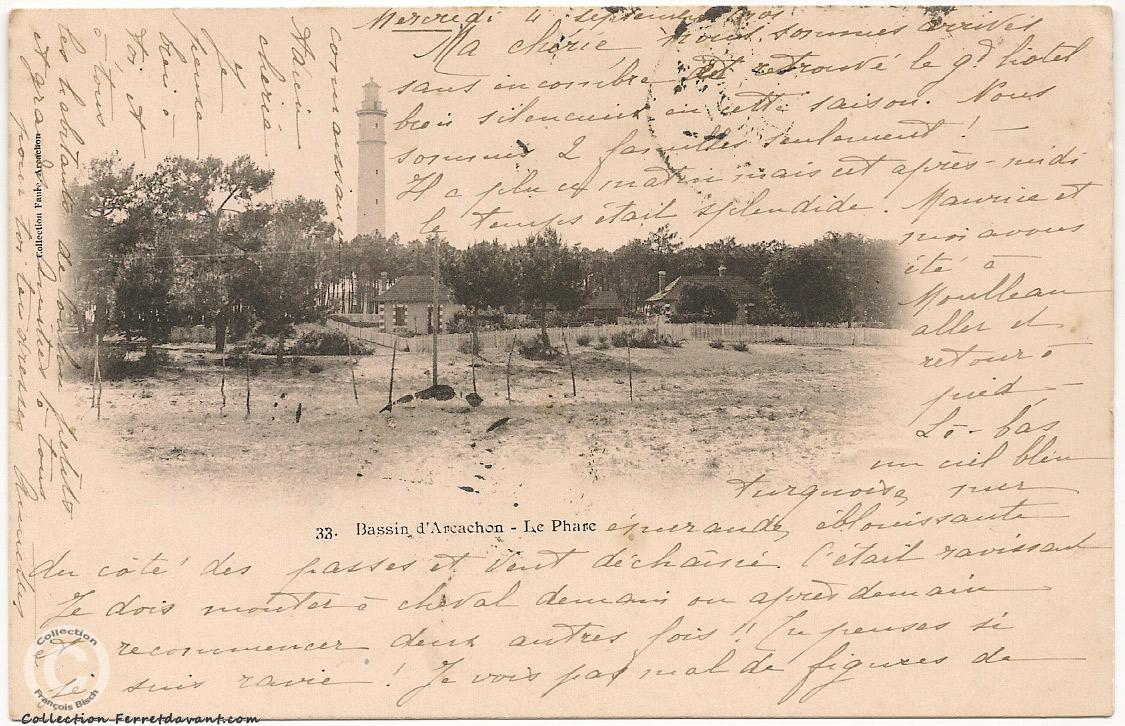 Mercredi 4 septembre
Ma chérie nous sommes arrivés
sans encombre et retrouvé le gd hotel
bien silencieux en cette saison. Nous
sommes 2 familles seulement !
Il a plu ce matin mais cet après-midi
le temps était splendide. Maurice et
moi avons
été à
Moulleau
aller et
retour à
pied
Là-bas
un ciel bleu
turquoise, mer
émeraude, éblouissante
du côté des passes et vent déchaîné. C'était ravissant
Je dois monter à cheval demain ou après demain
et recommencer deux autres fois !! Tu penses si
je suis ravie ! Je vois pas mal de figures de
connaissance
chérie
Je
pense
bien à
toi et
à tous
les habitants de
et amitiés à tous
pour toi tendresses
33. Bassin d'Arcachon - Le Phare
Collection Faure, Arcachon
Collection
©
François Bisch
Collection Ferretdavant.com